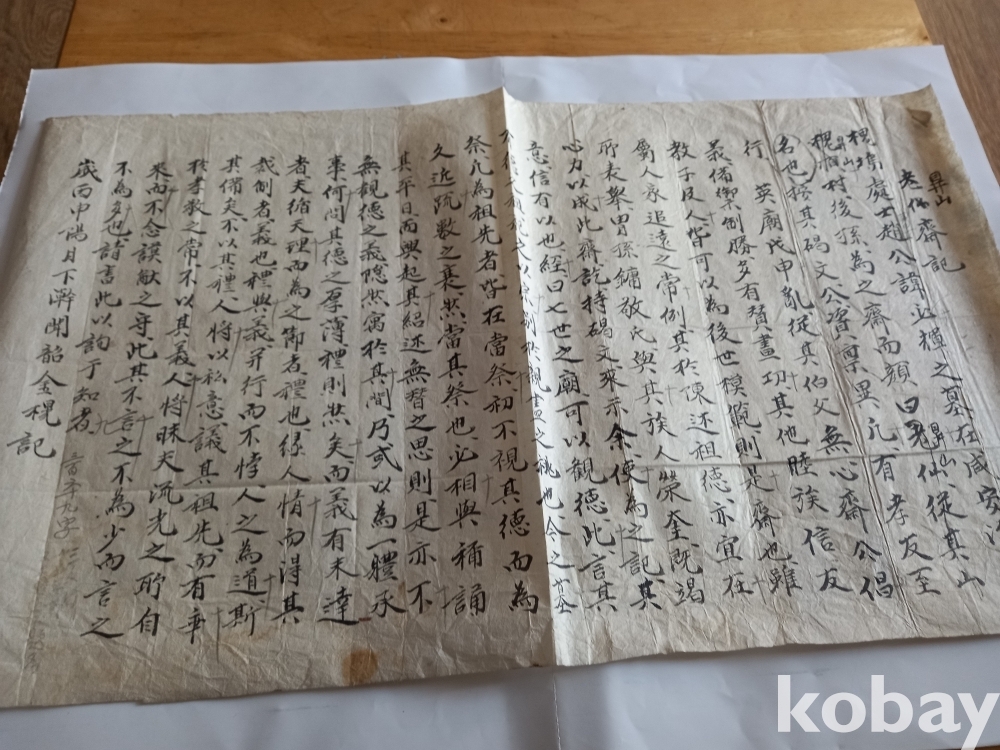 昇山
老仙齋記
槐塢處士趙公諱必橝之墓在咸安治
昇山
槐洞村後孫為之齋而顏曰昇山從其山
名也按其碣文公資稟異凡有孝友至
行英廟戊申亂從其伯父無心齋公倡
義備禦制勝多有賛畫功其他睦族信友
教子及人皆可以為後世模範則是齋也雖
房人家追遠之常例其於陳述祖德亦宜在
所表舉曾孫鏞敬氏與其族人榮奎既竭
心力以成此齋訖持碣文來示余使為之記其
意信有以也経曰七世之廟可以觀德此言其
於親盡之祧也今之
祭凡為祖先者皆在當祭初不視其德而為
久近疏數之義然當其祭也必相與稱誦
其平日而興起其紹述無替之思則是亦不
無親德之義隠然寓於其間乃或以為一體承
事何問其德之厚薄禮則然矣而義有未達
者夫循天理而為之節者禮也緣人情而得其
裁制者義也禮與義并行而不悖人之為道斯
其備矣不以其禮人將以私意議其祖先而有乖
於孝敎之常不以其義人將昧夫流光之所自
來而不念謨猷之守此其不言之不為少而言之
不為多也請書此以詢于知者
歲丙申陽月下澣聞韶金榥記
kobay